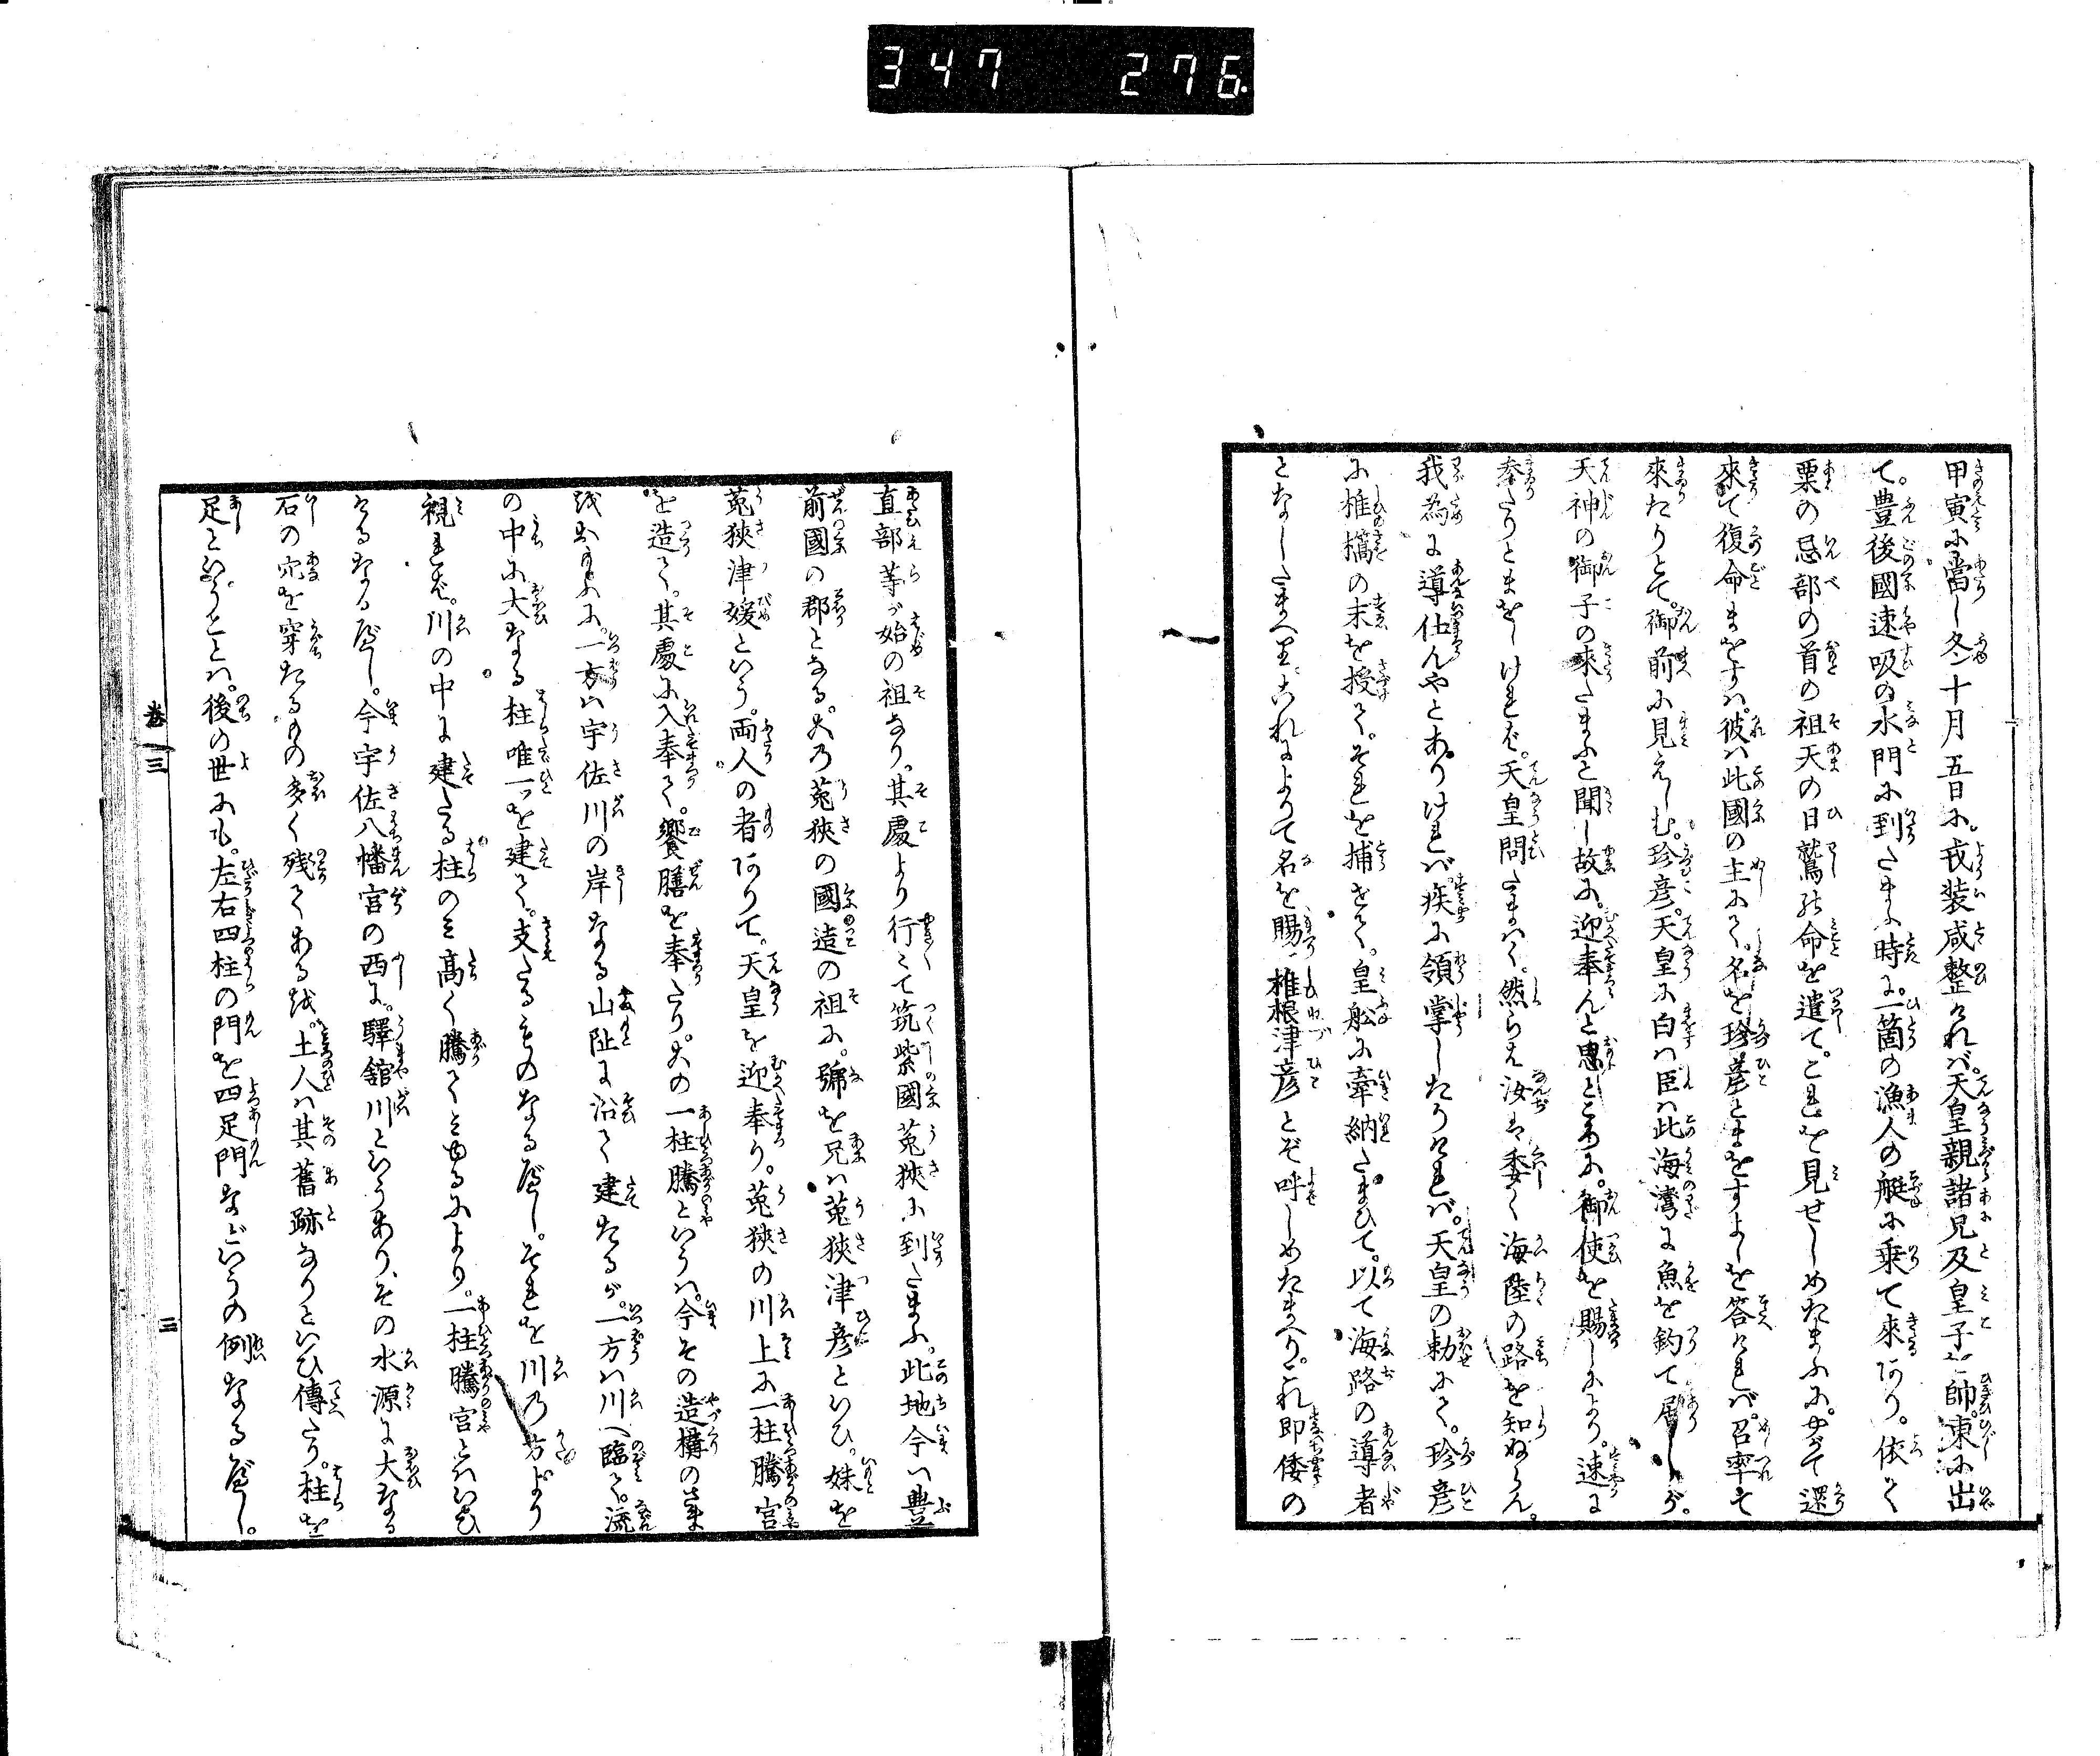 347 276.
甲寅に當し冬十月五日に。戎装咸整ければ。天皇親諸兄及皇子を帥東に出
て。豊後國速吸の水門に到たまふ時に。一箇の漁人の艇に乗て來るあり。依て
粟の忌部の首の祖天の日鷲の命を遣て。これを見せしめたまふに。やがて還
來て復命まをすは。彼は此國の主にて。名を珍彦とまをすよしを答ければ。召率て
來たりとて。御前に見えしむ。珍彦。天皇に白は臣は此海湾に魚を釣て居しが。
天神の御子の來たまふと聞し故に。迎奉んと思ところに。御使を賜しにより。速に
奉たりとまをしければ。天皇問たまはく。然らば汝は委く海陸の路を知ぬらん。
我為に導仕んやとありければ疾に領掌したりければ。天皇の勅にて。珍彦
に椎檇の末を授て。それを捕せて。皇船に牽納たまひて。以て海路の導者
となしたまへり。これによりて名を賜。椎根津彦とぞ呼しめたまへり。これ即倭の
直部等が始の祖なり。其處より行々て筑紫國菟狹に到たまふ。此地今は豊
前國の郡となる。この菟狹の國造の祖に。號を兄は菟狹津彦といひ。妹を
菟狹津媛といふ。両人の者ありて。天皇を迎奉り。菟狹の川上に一柱騰宮
を造て。其處に入奉て。饗膳を奉たり。この一柱騰といふは。今その造構のさま
をおもふに。一方は宇佐川の岸なる山阯に沿て建たるが。一方は川へ臨て。流
の中に大なる柱唯一つを建て。支たるものなるべし。それを川の方より
視れば。川の中に建たる柱のミ高く騰てミゆるにより。一柱騰宮とはいひ
けるなるべし。今宇佐八幡宮の西に。驛舘川といふあり、その水源に大なる
石の穴を穿たるもの多く残てあるを。土人は其舊跡なりといひ傳たり。柱を
足といふことは。後の世にも。左右四柱の門を四足門などいふの例なるべし。
巻三
三